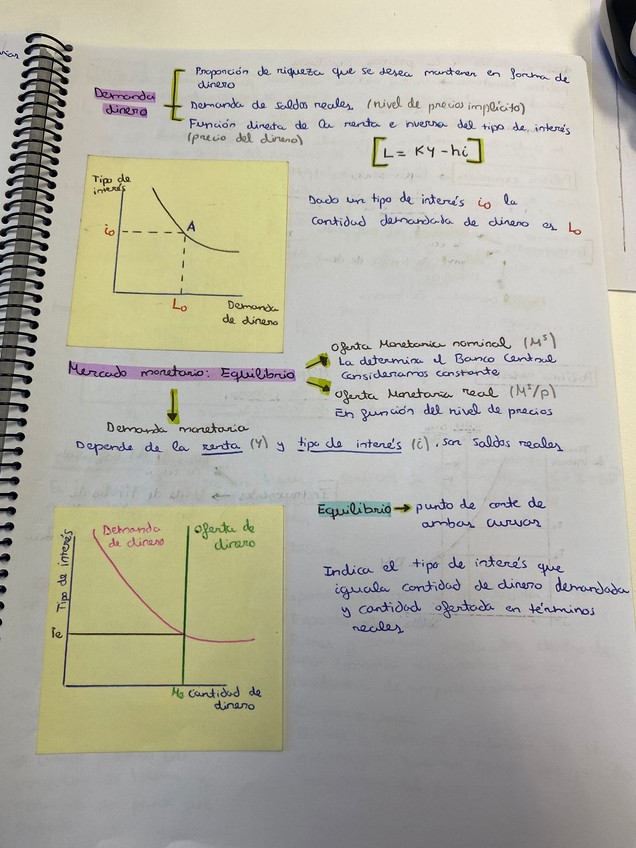 Proporción de riqueza que se desea mantener en forma de
dinero
Demanda
dinero
Demanda de saldos reales (nivel de precios implícito)
Función directa de la renta e inversa del tipo de interés
(precio del dinero)
[L = KY - hi]
Tipo de
interés
io
A
Lo
Demanda
de dinero
Dado un tipo de interés io la
cantidad demandada de dinero es Lo
Mercado monetario: Equilibrio
Oferta Monetaria nominal (Mˢ)
La determina el Banco Central
Consideramos constante
Oferta Monetaria real (Mˢ/p)
En función del nivel de precios
Demanda monetaria
Depende de la renta (Y) y tipo de interés (i). son saldos reales
Tipo de interés
Demanda
de dinero
Oferta de
dinero
Mo
Cantidad de
dinero
Equilibrio → punto de corte de
ambas curvas
Indica el tipo de interés que
iguala cantidad de dinero demandada
y cantidad ofertada en términos
reales